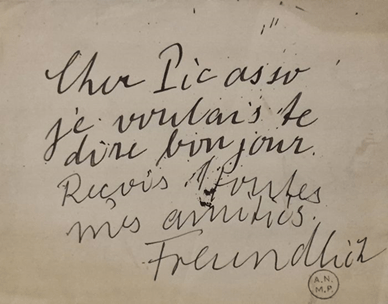 Cher Picasso
je voulais te
dire bonjour.
Reçois toutes
mes amitiés.
Freundlich
A.N.
M.P.